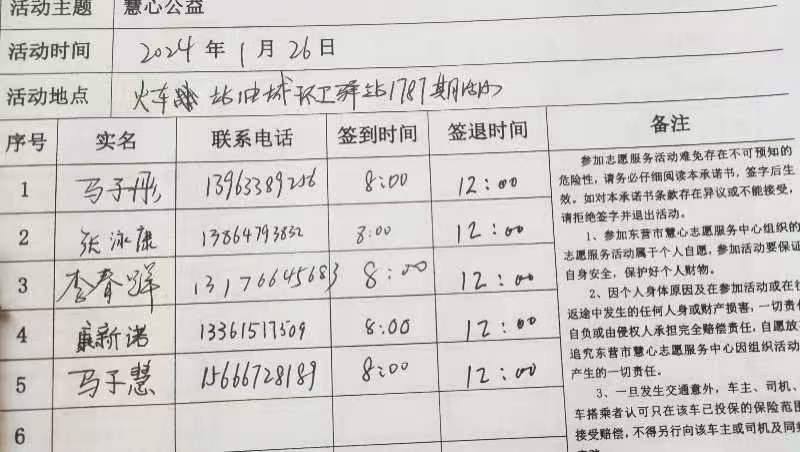 活动主题 慧心公益
活动时间 2024 年 1 月 26 日
活动地点 火车 站 城环卫驿站1787期活动
序号 实名 联系电话 签到时间 签退时间 备注
1 马子彤 13963389256 8:00 12:00
2 张泳康 13864793832 8:00 12:00
3 李春 13176645683 8:00 12:00
4 新诺 13361517509 8:00 12:00
5 马子慧 15666728189 8:00 12:00
6
参加志愿服务活动难免存在不可预知的
危险性，请务必仔细阅读本承诺书，签字后生
效。如对本承诺书条款存在异议或不能接受，
请拒绝签字并退出活动。
1、参加东营市慧心志愿服务中心组织的
志愿服务活动属于个人自愿，参加活动要保证
自身安全，保护好个人财物。
2、因个人身体原因及在参加活动或在往
返途中发生的任何人身或财产损害，一切责任
自负或由侵权人承担完全赔偿责任，自愿放
追究东营市慧心志愿服务中心因组织活动
产生的一切责任。
3、一旦发生交通意外，车主、司机、
车搭乘者认可只在该车已投保的保险范围
接受赔偿，不得另行向该车主或司机及同